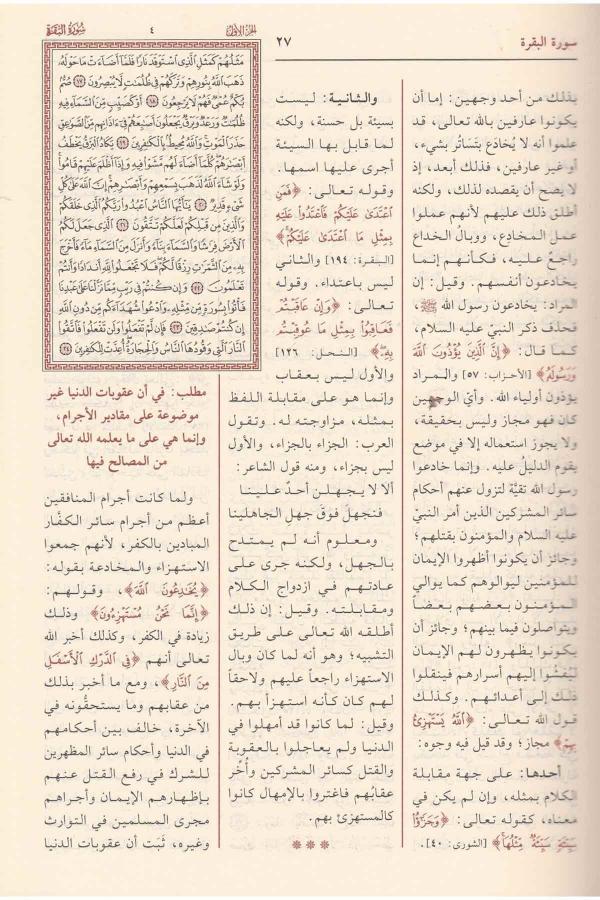 سورة البقرة
٢٧
الجزء الأول
٤
سورة البقرة
بذلك من أحد وجهين: إما أن
يكونوا عارفين بالله تعالى، قد
علموا أنه لا يُخادَع بتَساتُر بشيء،
أو غير عارفين، فذلك أبعد، إذ
لا يصح أن يقصده لذلك، ولكنه
أطلق ذلك عليهم لأنهم عملوا
عمل المخادِع، ووبالُ الخداع
راجعٌ عليه، فكأنهم إنما
يخادعون أنفسهم. وقيل: إن
المراد: يخادعون رسول الله ﷺ،
فحذف ذكر النبيّ عليه السلام،
كما قال: ﴿إِنَّ الَّذِينَ يُؤْذُونَ اللَّهَ
وَرَسُولَهُ﴾ [الأحزاب: ٥٧] والمراد
يؤذون أولياء الله. وأيّ الوجهين
كان فهو مجاز وليس بحقيقة،
ولا يجوز استعماله إلا في موضع
يقوم الدليل عليه. وإنما خادعوا
رسول الله تقيَّة لتزول عنهم أحكام
سائر المشركين الذين أمر النبيّ
عليه السلام والمؤمنون بقتلهم؛
وجائز أن يكونوا أظهروا الإيمان
للمؤمنين ليوالوهم كما يوالي
المؤمنون بعضهم بعضاً
ويتواصلون فيما بينهم؛ وجائز أن
يكونوا يظهرون لهم الإيمان
ليُفشُوا إليهم أسرارهم فينقلوا
ذلك إلى أعدائهم. وكذلك
قول الله تعالى: ﴿اللَّهُ يَسْتَهْزِئُ
بِهِمْ﴾ مجاز؛ وقد قيل فيه وجوه:
أحدها: على جهة مقابلة
الكلام بمثله، وإن لم يكن في
معناه، كقوله تعالى: ﴿وَجَزَٰٓؤُا
سَيِّئَةٍ سَيِّئَةٌ مِّثْلُهَا﴾ [الشورى: ٤٠].
والثانية: ليست
بسيئة بل حسنة، ولكنه
لما قابل بها السيئة
أجرى عليها اسمها.
وقوله تعالى: ﴿فَمَنِ
اعْتَدَىٰ عَلَيْكُمْ فَاعْتَدُوا عَلَيْهِ
بِمِثْلِ مَا اعْتَدَىٰ عَلَيْكُمْ﴾
[البقرة: ١٩٤] والثاني
ليس باعتداء. وقوله
تعالى: ﴿وَإِنْ عَاقَبْتُمْ
فَعَاقِبُوا بِمِثْلِ مَا عُوقِبْتُم
بِهِ﴾ [النحل: ١٢٦]
والأول ليس بعقاب
وإنما هو على مقابلة اللفظ
بمثله، مزاوجته له. وتقول
العرب: الجزاء بالجزاء، والأول
ليس بجزاء، ومنه قول الشاعر:
ألا لا يجهلن أحدٌ علينا
فنجهلَ فوقَ جهلِ الجاهلينا
ومعلوم أنه لم يمتدح
بالجهل، ولكنه جرى على
عادتهم في ازدواج الكلام
ومقابلته. وقيل: إن ذلك
أطلقه الله تعالى على طريق
التشبيه؛ وهو أنه لما كان وبال
الاستهزاء راجعاً عليهم ولاحقاً
لهم كان كأنه استهزأ بهم.
وقيل: لما كانوا قد أمهلوا في
الدنيا ولم يعاجلوا بالعقوبة
والقتل كسائر المشركين وأُخِّر
عقابُهم فاغتروا بالإمهال كانوا
كالمستهزئ بهم.
***
مَثَلُهُمْ كَمَثَلِ الَّذِي اسْتَوْقَدَ نَارًا فَلَمَّا أَضَاءَتْ مَا حَوْلَهُ
ذَهَبَ اللَّهُ بِنُورِهِمْ وَتَرَكَهُمْ فِي ظُلُمَاتٍ لَّا يُبْصِرُونَ ﴿١٧﴾ صُمٌّ
بُكْمٌ عُمْيٌ فَهُمْ لَا يَرْجِعُونَ ﴿١٨﴾ أَوْ كَصَيِّبٍ مِّنَ السَّمَاءِ فِيهِ
ظُلُمَاتٌ وَرَعْدٌ وَبَرْقٌ يَجْعَلُونَ أَصَابِعَهُمْ فِي آذَانِهِم مِّنَ الصَّوَاعِقِ
حَذَرَ الْمَوْتِ وَاللَّهُ مُحِيطٌ بِالْكَافِرِينَ ﴿١٩﴾ يَكَادُ الْبَرْقُ يَخْطَفُ
أَبْصَارَهُمْ كُلَّمَا أَضَاءَ لَهُم مَّشَوْا فِيهِ وَإِذَا أَظْلَمَ عَلَيْهِمْ قَامُوا
وَلَوْ شَاءَ اللَّهُ لَذَهَبَ بِسَمْعِهِمْ وَأَبْصَارِهِمْ إِنَّ اللَّهَ عَلَىٰ كُلِّ
شَيْءٍ قَدِيرٌ ﴿٢٠﴾ يَا أَيُّهَا النَّاسُ اعْبُدُوا رَبَّكُمُ الَّذِي خَلَقَكُمْ
وَالَّذِينَ مِن قَبْلِكُمْ لَعَلَّكُمْ تَتَّقُونَ ﴿٢١﴾ الَّذِي جَعَلَ لَكُمُ
الْأَرْضَ فِرَاشًا وَالسَّمَاءَ بِنَاءً وَأَنزَلَ مِنَ السَّمَاءِ مَاءً فَأَخْرَجَ
بِهِ مِنَ الثَّمَرَاتِ رِزْقًا لَّكُمْ فَلَا تَجْعَلُوا لِلَّهِ أَندَادًا وَأَنتُمْ
تَعْلَمُونَ ﴿٢٢﴾ وَإِن كُنتُمْ فِي رَيْبٍ مِّمَّا نَزَّلْنَا عَلَىٰ عَبْدِنَا
فَأْتُوا بِسُورَةٍ مِّن مِّثْلِهِ وَادْعُوا شُهَدَاءَكُم مِّن دُونِ اللَّهِ
إِن كُنتُمْ صَادِقِينَ ﴿٢٣﴾ فَإِن لَّمْ تَفْعَلُوا وَلَن تَفْعَلُوا فَاتَّقُوا
النَّارَ الَّتِي وَقُودُهَا النَّاسُ وَالْحِجَارَةُ أُعِدَّتْ لِلْكَافِرِينَ ﴿٢٤﴾
مطلب: في أن عقوبات الدنيا غير
موضوعة على مقادير الأجرام،
وإنما هي على ما يعلمه الله تعالى
من المصالح فيها
ولما كانت أجرام المنافقين
أعظم من أجرام سائر الكفَّار
المبادين بالكفر، لأنهم جمعوا
الاستهزاء والمخادعة بقوله:
﴿يُخَادِعُونَ اللَّهَ﴾، وقولهم:
﴿إِنَّمَا نَحْنُ مُسْتَهْزِءُونَ﴾ وذلك
زيادة في الكفر، وكذلك أخبر الله
تعالى أنهم ﴿فِي الدَّرْكِ الْأَسْفَلِ
مِنَ النَّارِ﴾، ومع ما أخبر بذلك
من عقابهم وما يستحقُّونه في
الآخرة، خالف بين أحكامهم
في الدنيا وأحكام سائر المظهرين
للشرك في رفع القتل عنهم
بإظهارهم الإيمان وأجراهم
مجرى المسلمين في التوارث
وغيره، ثبَت أن عقوبات الدنيا